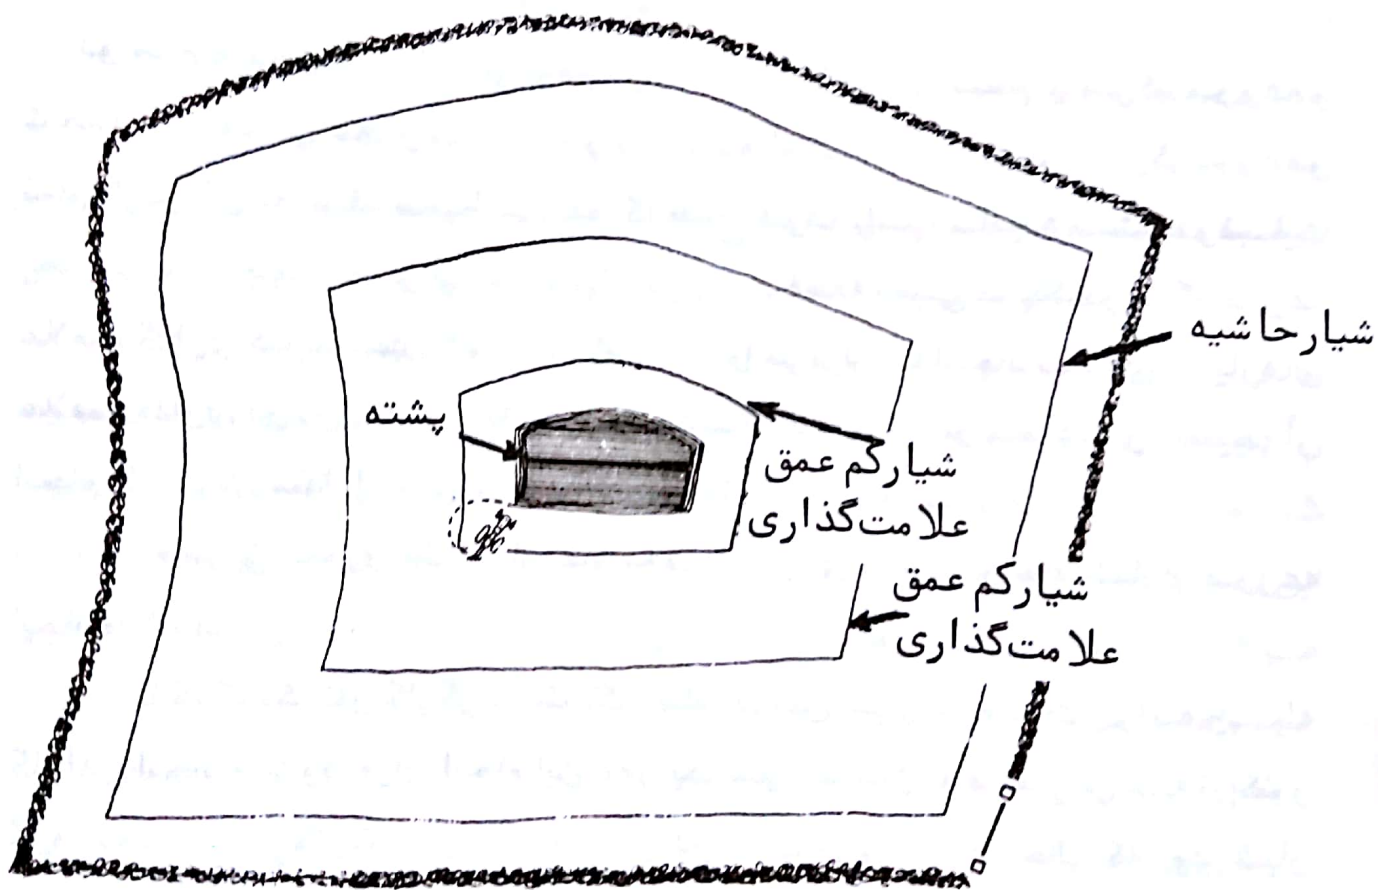 شیارحاشیه
پشته
شیارکم عمق
علامت‌گذاری
شیارکم عمق
علامت‌گذاری